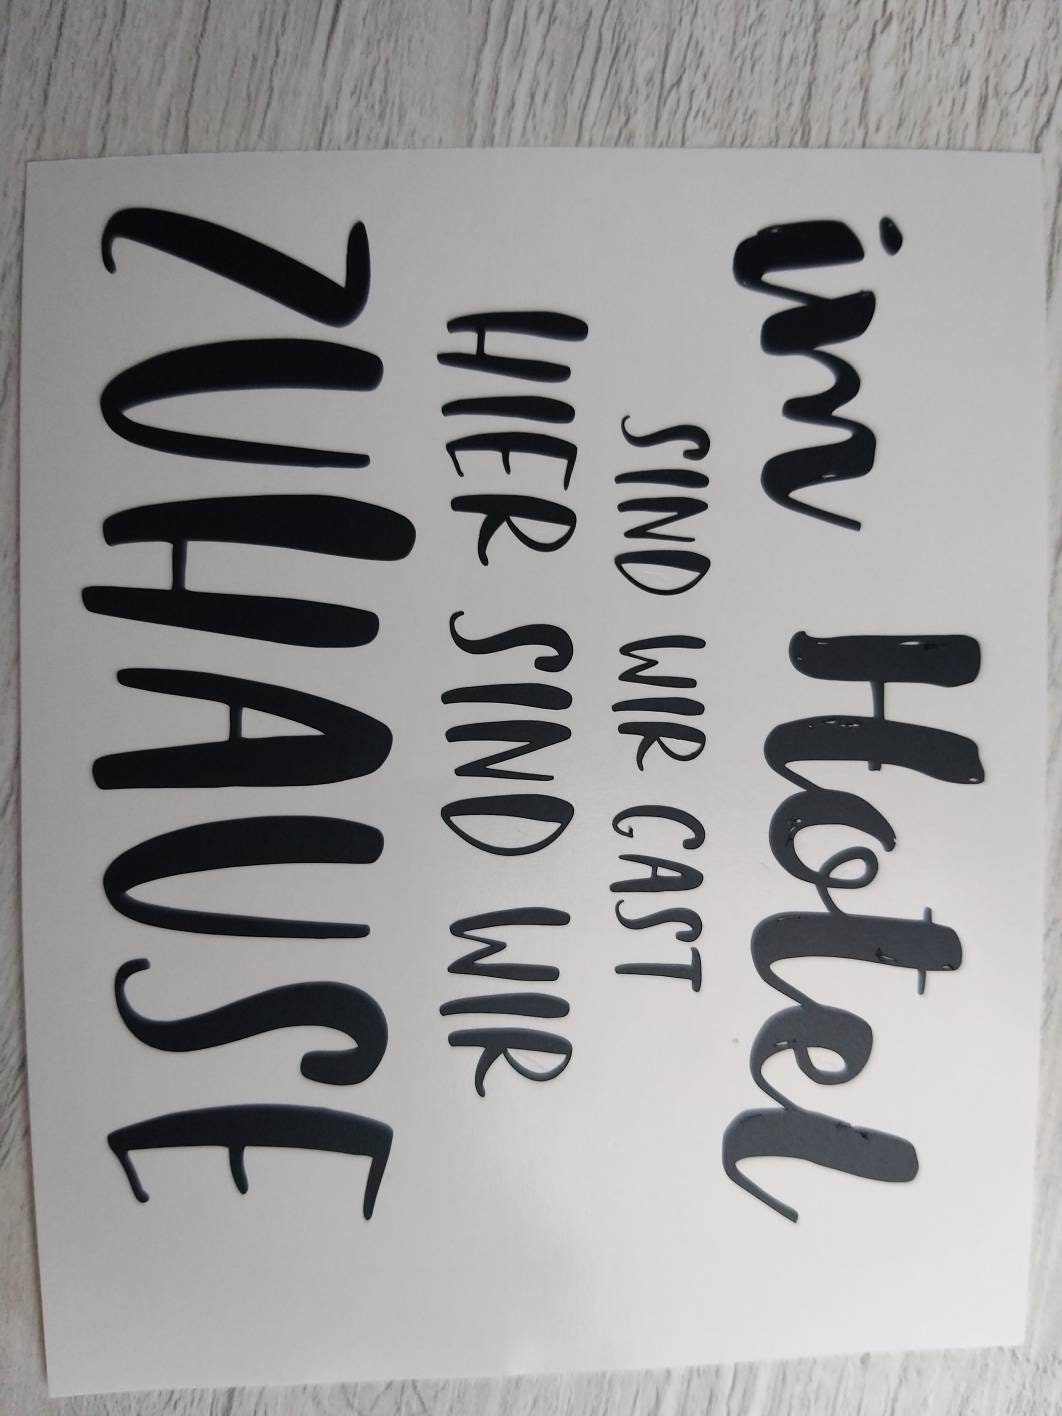 im Hotel
SIND WIR GAST
HIER SIND WIR
ZUHAUSE